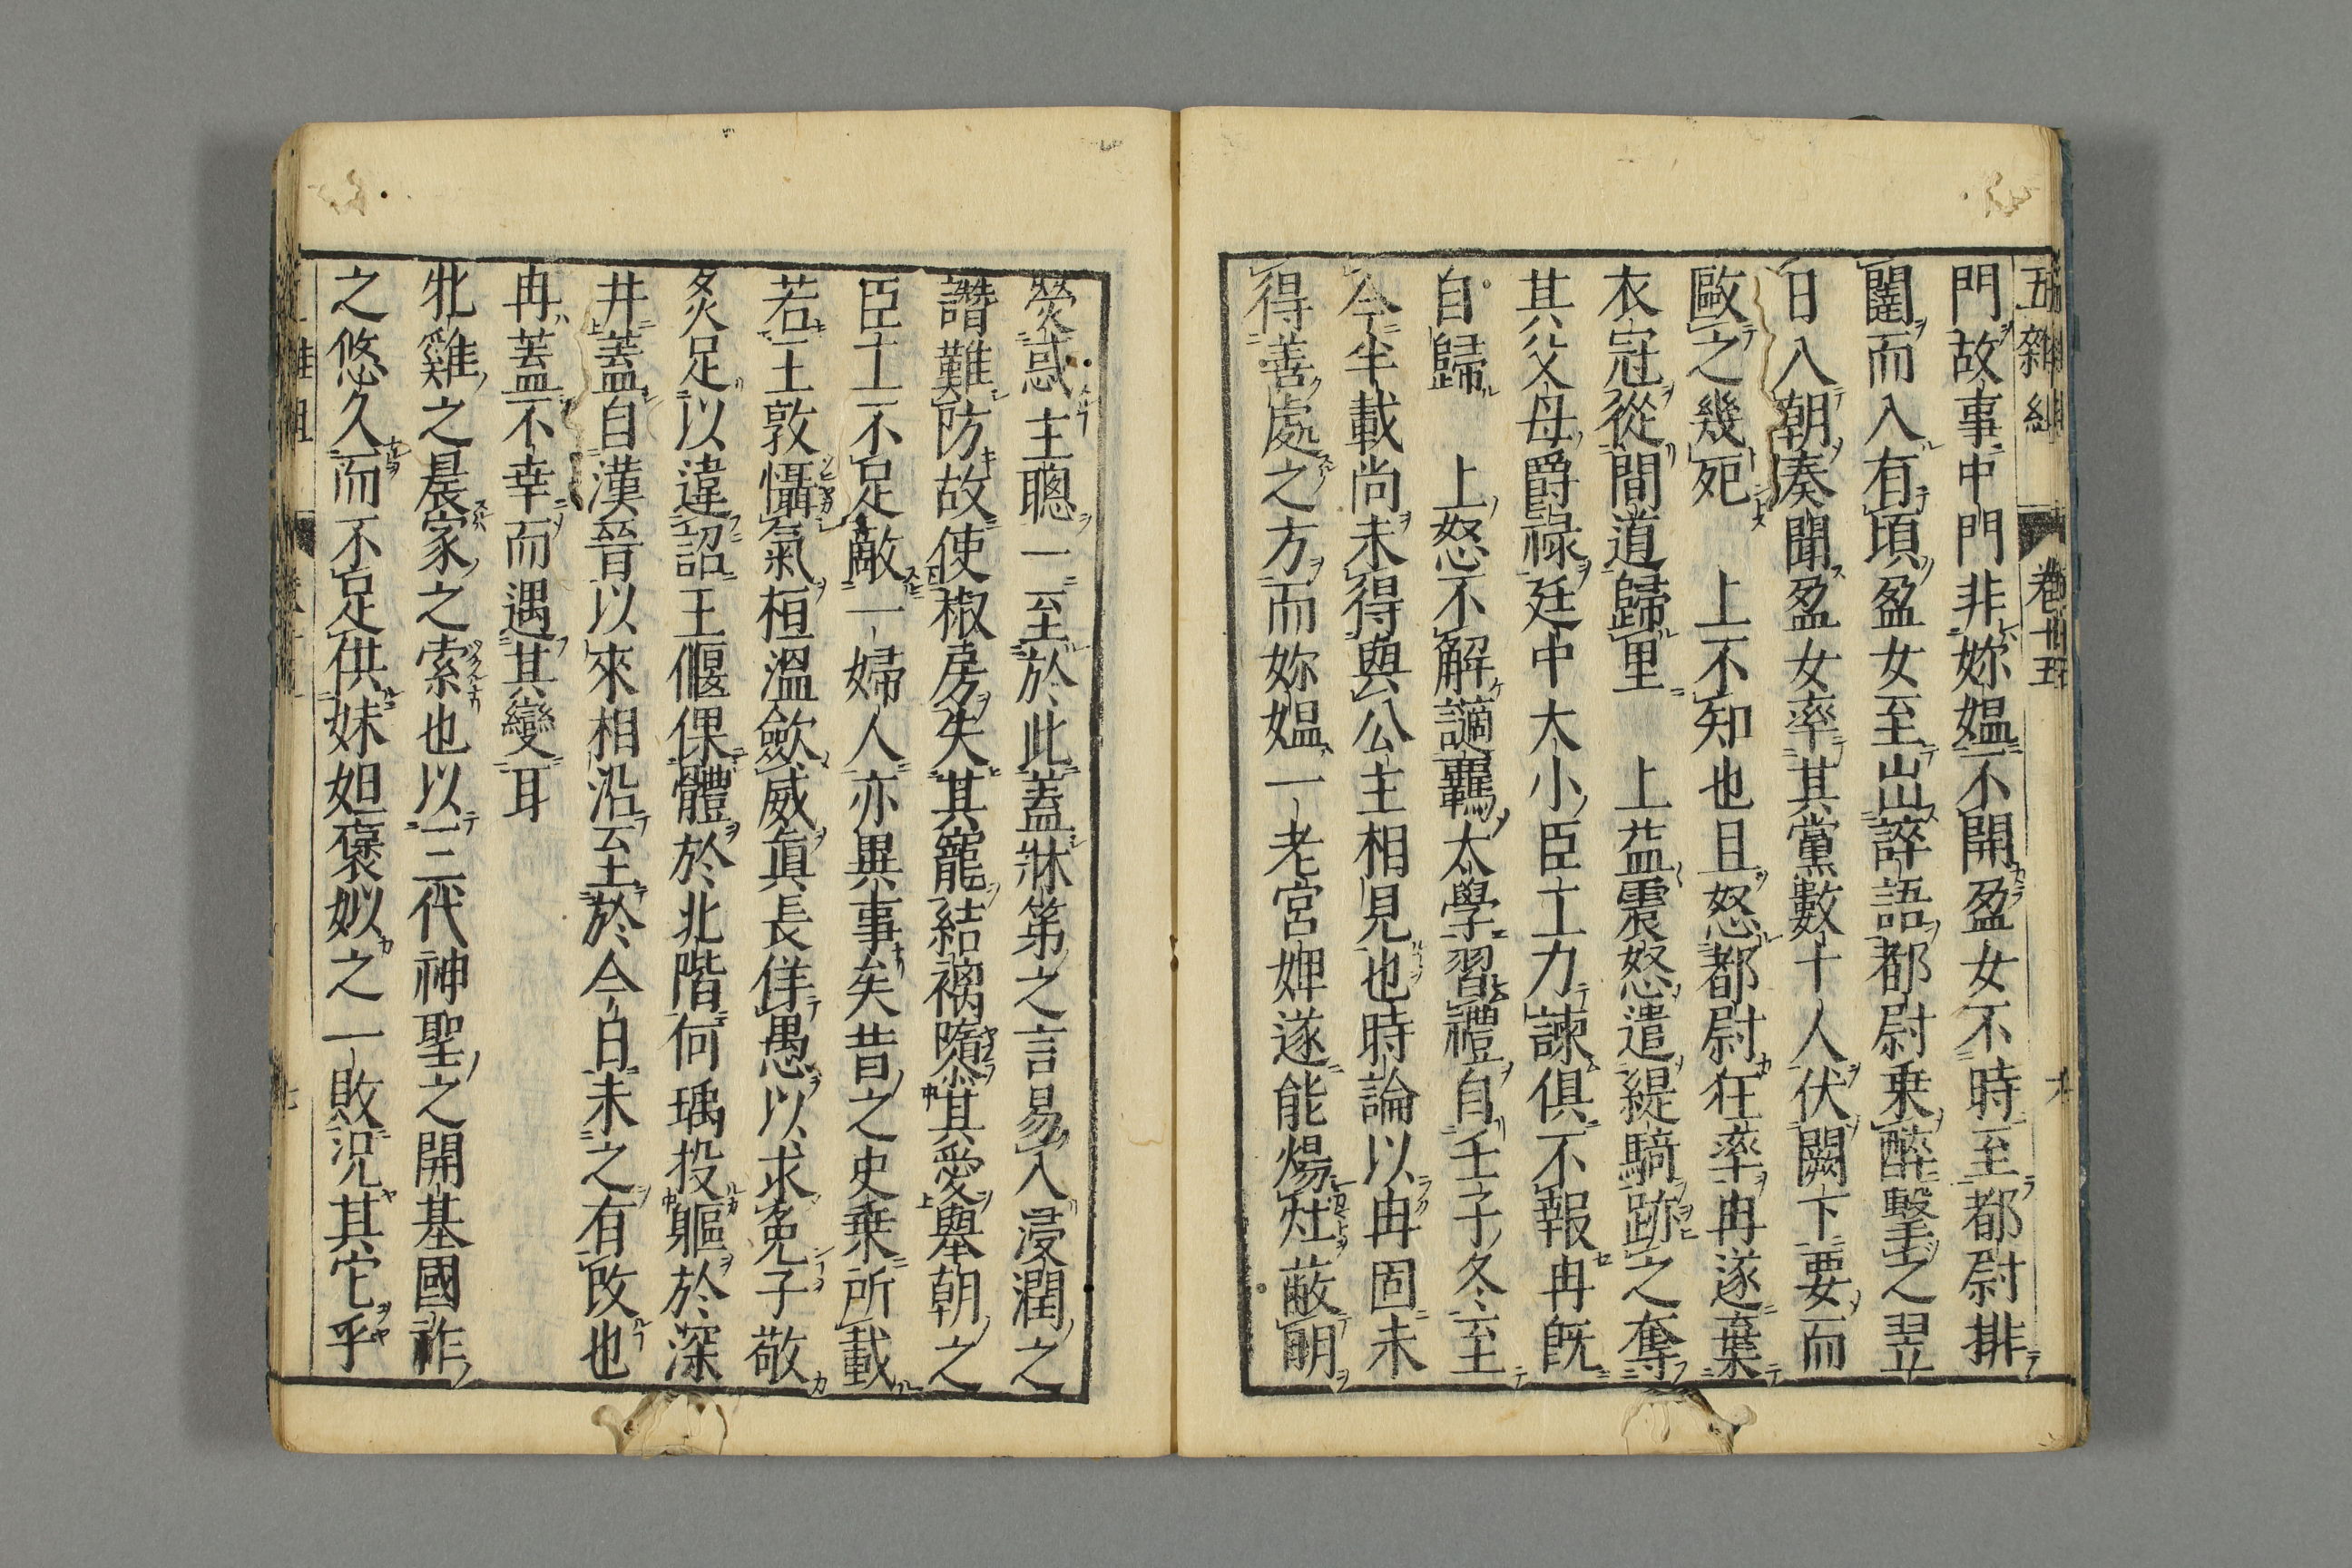 五雜組 卷十五
門故事中門非妳媼不開盈女不時至都尉排
闥而入有頃盈女至出誶語都尉乗醉擊之翌
日入朝奏聞盈女率其黨數十人伏闕下要而
毆之幾死　上不知也且怒都尉狂率冉遂棄
衣冠從間道歸里　上益震怒遣緹騎跡之奪
其父母爵祿廷中大小臣工力諫俱不報冉既
自歸　上怒不解謫羈太學習禮自壬子冬至
今半載尚未得與公主相見也時論以冉固未
得善處之方而妳媼一老宮婢遂能煬灶蔽明
熒惑主聰一至於此蓋牀笫之言易入浸潤之
譖難防故使椒房失其寵結褵隳其愛舉朝之
臣工不足敵一婦人亦異事矣昔之史乗所載
若王敦懾氣桓溫歛威眞長佯愚以求免子敬
炙足以違詔王偃倮體於北階何瑀投軀於深
井蓋自漢晉以來相沿至於今日未之有改也
冉蓋不幸而遇其變耳
牝雞之晨家之索也以三代神聖之開基國祚
之悠久而不足供妹妲褒姒之一敗況其它乎